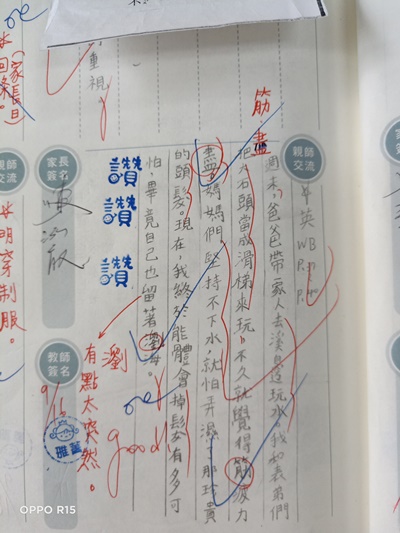 親師交流
英
WB
筋、盡
週末,爸爸帶一家人去溪邊玩水。我和表弟們
把大石頭當成滑梯來玩,不久就覺得筋疲力
媽媽們堅持不下水,就怕弄濕了那珍貴
的頭髮。現在,我終於能體會掉髮有多可
怕,畢竟自己也留著 海。
瀏
有點太突然。
good!
讚
讚
讚
重視。
家長簽名
教師簽名
親師交流
(家長日
回條。
明穿制服。
OPPO R15